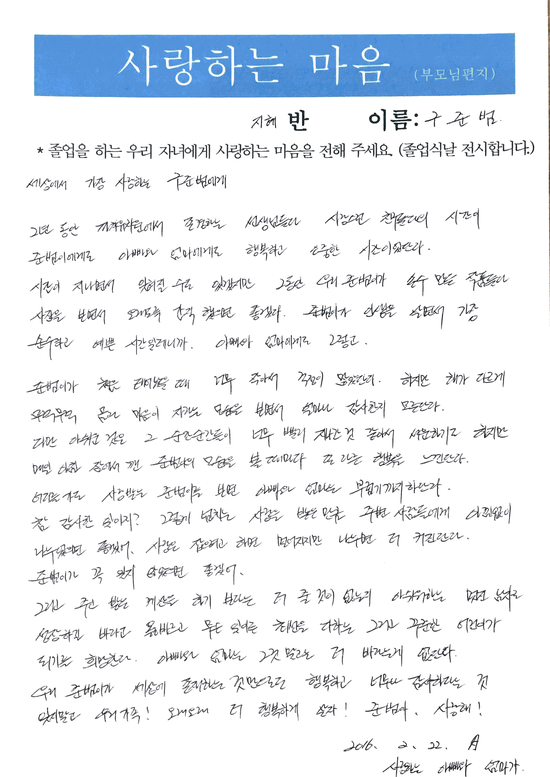 사랑하는 마음 (부모님편지)
지혜 반 이름: 구준범
* 졸업을 하는 우리 자녀에게 사랑하는 마음을 전해 주세요. (졸업식날 전시합니다.)
세상에서 가장 사랑하는 구준범에게
2년 동안 선생님들과 시간이
준범이에게도 아빠와 엄마에게도 행복하고 소중한 시간이었단다.
시간이 지나면서 잊혀질 수도 있겠지만 2년동안 우리 준범이가 손수 만든 작품들과
사진을 보면서 오래도록 간직 했으면 좋겠다. 준범이가 인생을 살면서 가장
순수하고 예쁜 시간일테니까. 아빠와 엄마에게도 그렇고.
준범이가 처음 태어났을 때 너무 작아서 걱정이 많았단다. 하지만 해가 다르게
무럭무럭 몸과 마음이 자라는 모습을 보면서 얼마나 감사한지 모른단다.
다만 아쉬운 것은 그 순간순간들이 너무 빨리 지나간 것 같아서 서운하기도 하지만
매일 아침 잠에서 깬 준범이의 모습을 볼 때마다 또 다른 행복을 느낀단다.
사랑받는 준범이를 보면 아빠와 엄마는 부럽기까지 하단다.
참 감사한 일이지? 그렇게 넘치는 사랑을 받은 만큼 주변 사람들에게 아낌없이
나누었으면 좋겠어. 사랑은 잡으려고 하면 멀어지지만 나누면 더 커진단다.
준범이가 꼭 잊지 않았으면 좋겠어.
그리고 주고 받는 계산을 하기 보다는 더 줄 것이 없는지 아쉬워하는 멋진 남자로
성장하길 바라고 올바르고 모든 일에는 최선을 다하는 그리고 꾸준한 어린이가
되기를 희망한다. 아빠와 엄마는 그것 말고는 더 바라는게 없단다.
우리 준범이가 세상에 존재하는 것만으로도 행복하고 너무나 감사하다는 것
잊지말고 우리가족! 오래오래 더 행복하게 살자! 준범아, 사랑해!
2016. 2. 22. 月
사랑하는 아빠와 엄마가.